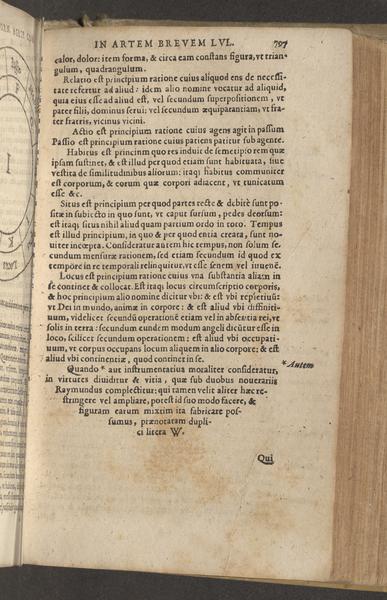 IN ARTEM BREVEM LVL.
calor, dolor: item forma, & circa eam constans figura, vt trian-
gulum, quadrangulum.
Relatio est principium ratione cuius aliquod ens de necessi-
tate refertur ad aliud: idem alio nomine vocatur ad aliquid,
quia eius esse ad aliud est, vel secundum superpositionem, vt
pater filii, dominus serui: vel secundum æquiparantiam, vt fra-
ter fratris, vicinus vicini.
Actio est principium ratione cuius agens agit in passum
Passio est principium ratione cuius patiens patitur sub agente.
Habitus est principium quo res induit se semetipso rem quæ
ipsam sustinet, & est illud per quod etiam sunt habituata, siue
vestita de similitudinibus aliorum: itaq; habitus communiter
est corporum, & eorum quæ corpori adiacent, vt tunicatum
esse &c.
Situs est principium per quod partes recte & debitè sunt po-
sitæ in subiecto in quo sunt, vt caput sursum, pedes deorsum:
est itaq; situs nihil aliud quam partium ordo in toto. Tempus
est illud principium, in quo & per quod entia creata, sunt no-
uiter incœpta. Consideratur autem hic tempus, non solum se-
cundum mensuræ rationem, sed etiam secundum id quod ex
tempore in re temporali relinquitur, vt esse senem vel iuuenē.
Locus est principium ratione cuius vna substantia aliam in
se continet & collocat. Est itaq; locus circumscriptio corporis,
& hoc principium alio nomine dicitur vbi: & est vbi repletiuū:
vt Dei in mundo, animæ in corpore: & est aliud vbi diffiniti-
uum, videlicet secundū operationē etiam vel in absentia rei, vt
solis in terra: secundum eundem modum angeli dicūtur esse in
loco, scilicet secundum operationem: est aliud vbi occupati-
uum, vt corpus occupans locum aliquem in alio corpore; & est
aliud vbi continentiæ, quod continet in se.
Quando * aut instrumentatiua moraliter consideratur,
* Autem
in virtutes diuiditur & vitia, quæ sub duobus nouenariis
Raymundus complectitur: qui tamen velit aliter hæc re-
stringere vel ampliare, potest id suo modo facere, &
figuram earum mixtim ita fabricare pos-
sumus, prænotatam dupli-
ci litera W.
Qui